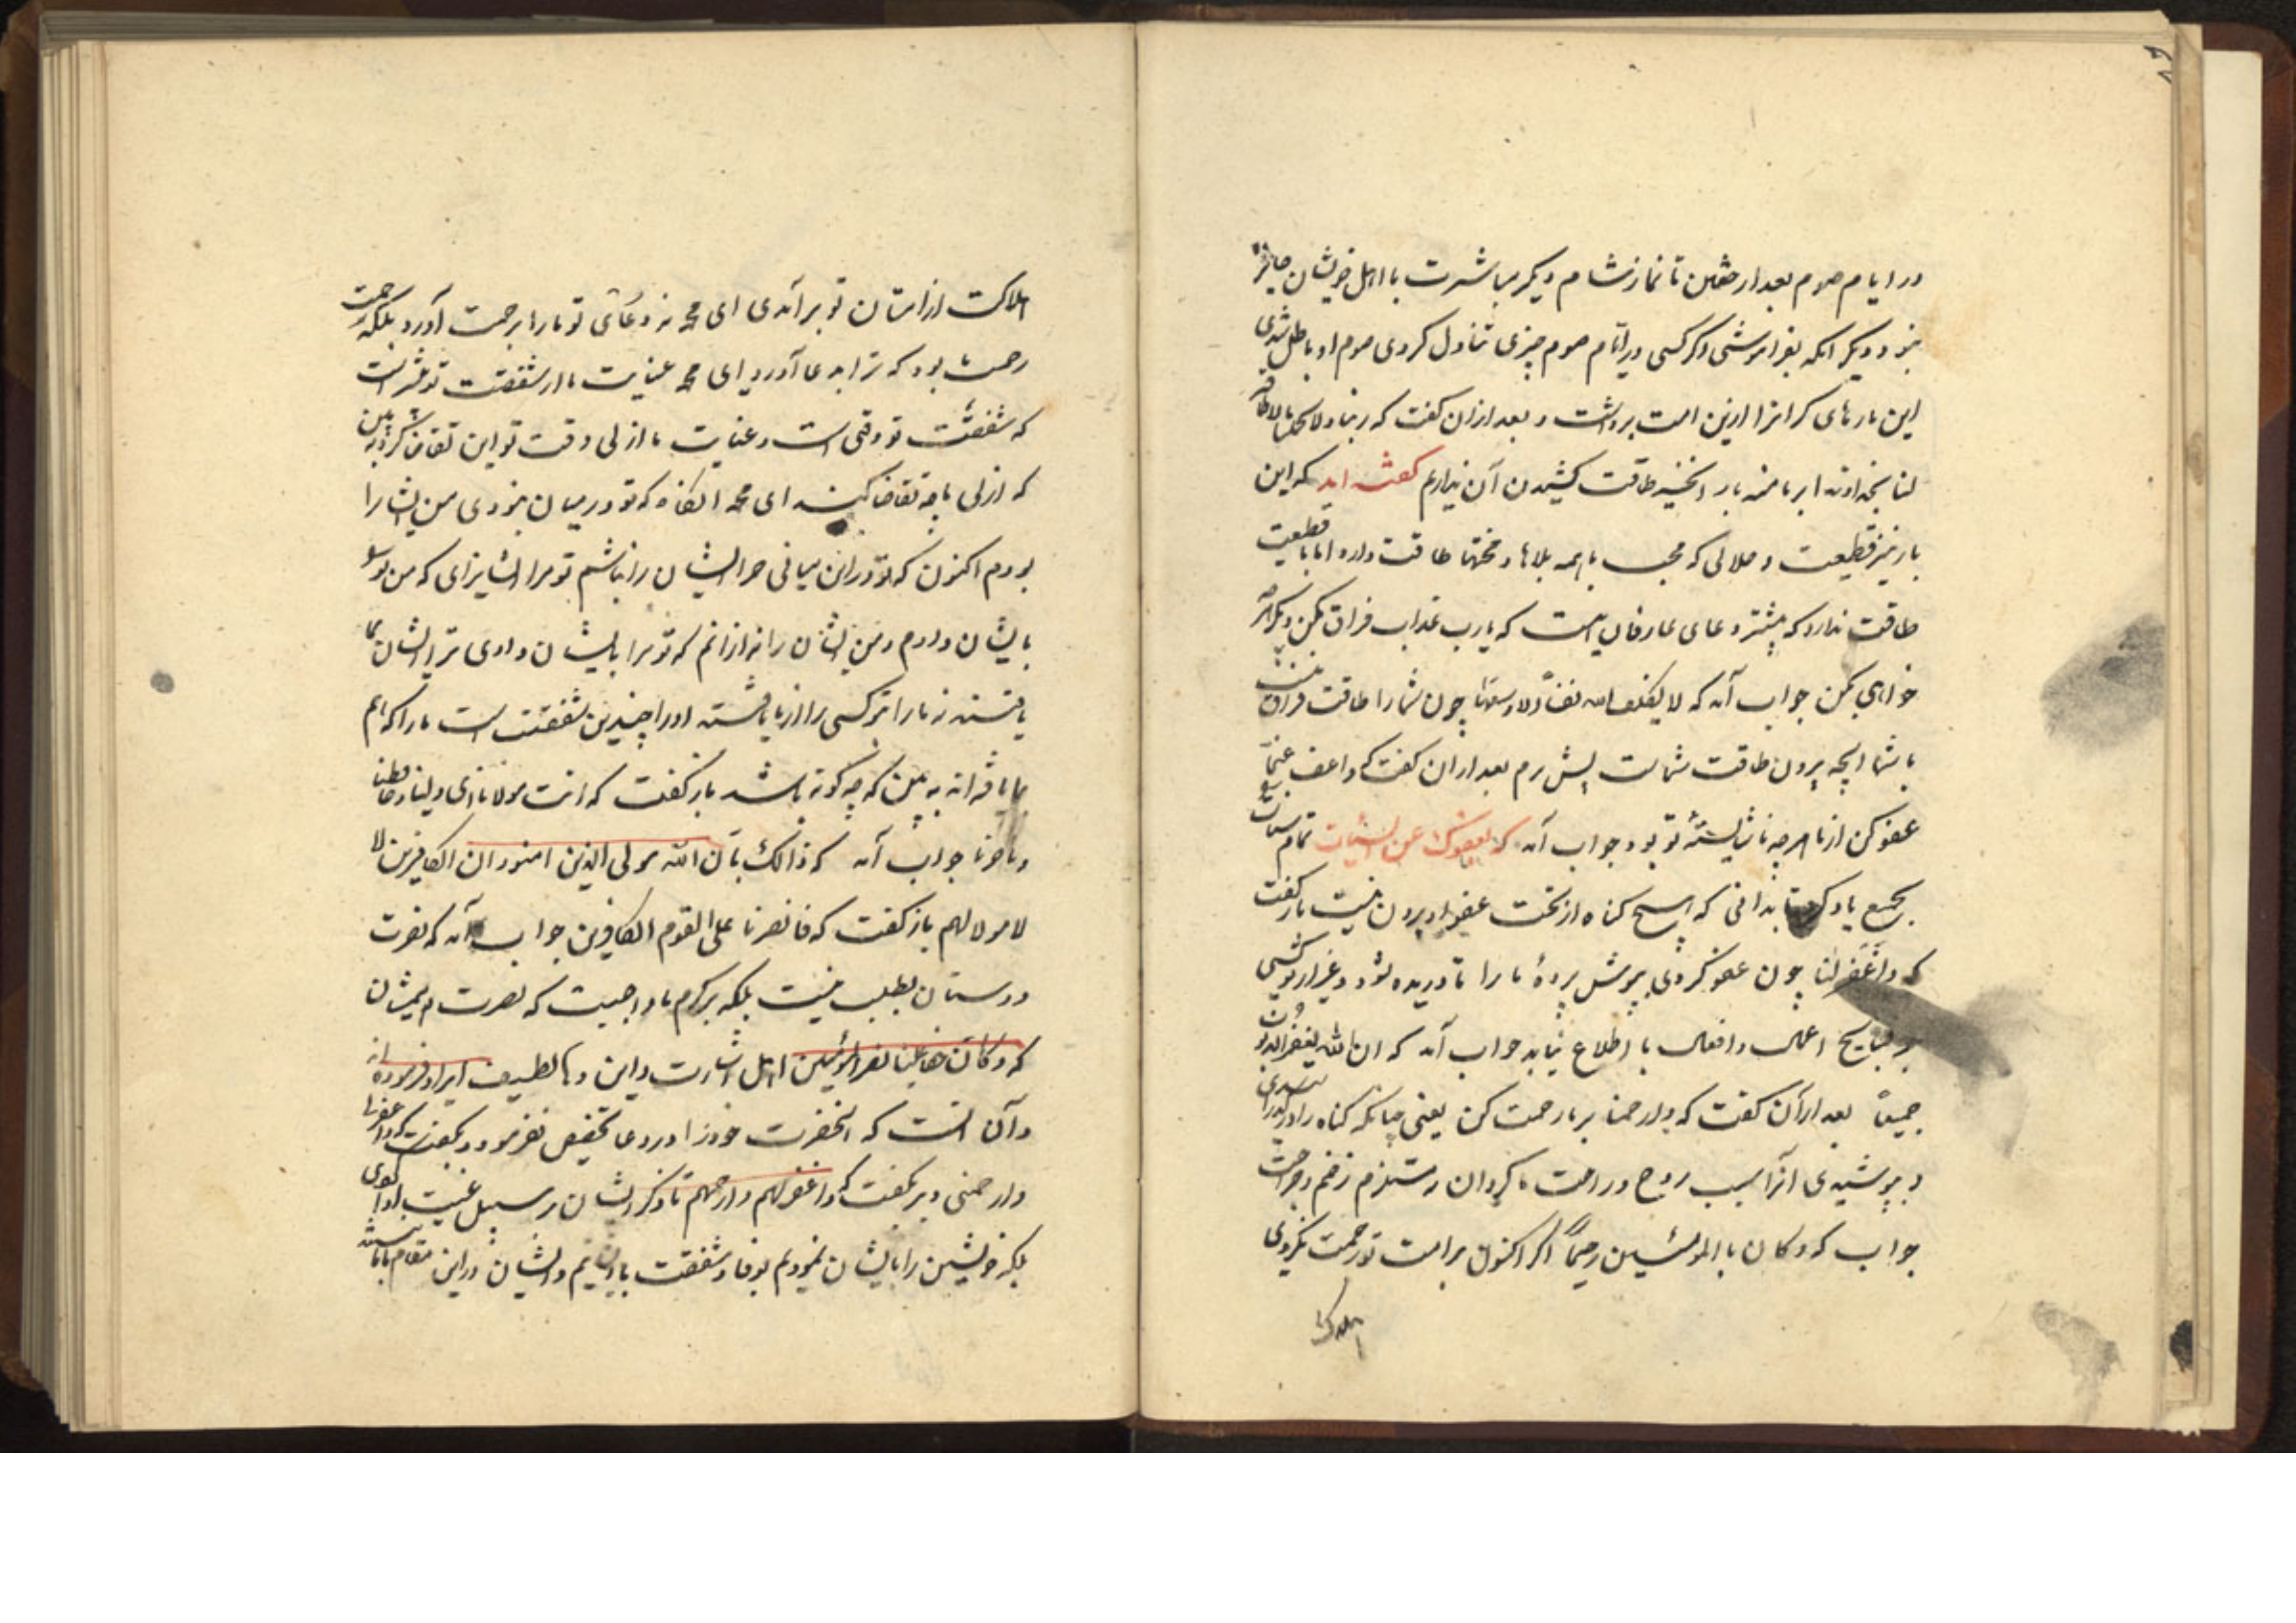 در ایام صوم بعد از خفتن تا نماز شام دیگر مباشرت با اهل خویشان جایز
نبود و دیگر آنکه بفراموشی اگر کسی در ایام صوم چیزی تناول کردی صوم او باطل شدی
این بارهای گرانرا ازین امت برداشت و بعد از ان گفت که ربنا ولا تحملنا مالا طاقة
لنا به خداوندا بر ما منه بار آنچه طاقت کشیدن آن نداریم گفته اند که این
بار نیز قطیعت و ملالی که محب با همه بلاها و محنتها طاقت دارد اما با قطیعت
طاقت ندارد که بیشتر دعای عارفان اینست که یارب عذاب فراق مکن دیگر هرچه
خواهی بکن جواب آمد که لا یکلف الله نفسا الا وسعها چون شما را طاقت فراق نیست
با شما آنچه بیرون طاقت شماست پیش نبرم بعد از ان گفت که واعف عنا
عفو کن از ما هرچه ناشایستهٔ تو بود جواب آمد که یعفوا عن السیئات تمام سیئات
بجمع یاد کرد تا بدانی که هیچ گناه از تحت عفو او بیرون نیست باز گفت
که واغفر لنا چون عفو کردی بپوش پردهٔ ما را تا دریده نشود و غیر از تو کسی
بر قبایح اعمال و افعال ما اطلاع نیابد جواب آمد که ان الله یغفر الذنوب
جمیعا بعد از آن گفت که وارحمنا بر ما رحمت کن یعنی چنانکه گناه را در گذرانیدی
و پوشیدی آنرا سبب روح و راحت ما گردان نه مستلزم زخم و جراحت
جواب که وکان باالمؤمنین رحیما اگر اکنون بر امت تو رحمت نکردی
هلاکت از امتان تو برآمدی ای محمد نه دعای تو ما را برحمت آورد بلکه رحمت
رحمت بود که ترا بدعا آورد ای محمد عنایت ما از شفقت تو بیشتر است
که شفقت تو وقتی است و عنایت ما ازلی وقت تو این تقاضا کرد ببین
که ازلی ما چه تقاضا کند ای محمد آنگاه که تو در میان نبودی من ایشانرا
بودم اکنون که تو در این میانی جز ایشان را نباشم تو مرا ایشانرا ای که من تو را
بایشان دادم و من ایشان را نه از انم که تو مرا بایشان دادی ترا ایشان بما
یافتند نه ما را بتو کسی را از ما یافته او را چندین شفقت است ما را که هم
ما یافته اند ببین که چه گونه باشد باز گفت که انت مولانا ای ولینا و حافظنا
و ناصرنا جواب آمد که ذالک بان الله مولی الذین امنوا و ان الکافرین لا
لا مولا لهم باز گفت که فانصرنا علی القوم الکافرین جواب آمد که نصرت
دوستان بطلب نیست بلکه بر کرم ما واجبست که نصرت دهیمشان
که وکان حقا علینا نصر المؤمنین اهل اشارت در این دعا لطیفه ایراد فرموده اند
و آن آنست که آنحضرت خود را در دعا تخصیص نفرمود و نگفت که واعفنا
وارحمنی و نیز نگفت که واغفر لهم وارحمهم تا ذکر ایشان بر سبیل غیبت بودی گوی
بلکه خویشتن را بایشان نمودیم بوفا و شفقت با ایشانیم و ایشان در این مقام با ما
اهلاکت